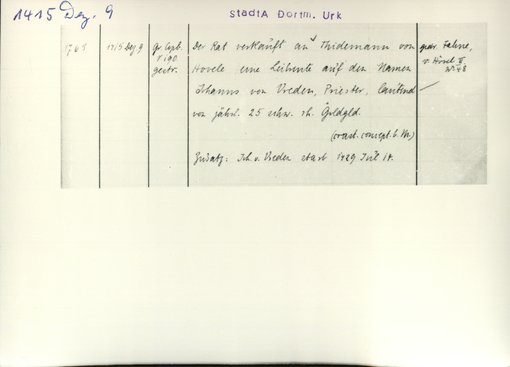 1415 Dez. 9
StadtA Dortm. Urk
1765
1415 Dez. 9
gr. Copb.
r 190
gestr.
Der Rat verkauft an Thidemann von
Hovele eine Leibrente auf den Namen
Johanns von Vreden, Priester, lautend
von jährl. 25 schw. rh. Goldgld.
Zusatz: Joh. v. Vreden starb 1429 Juli 14.
gedr. Fahne,
v. Hövel II
N° 48